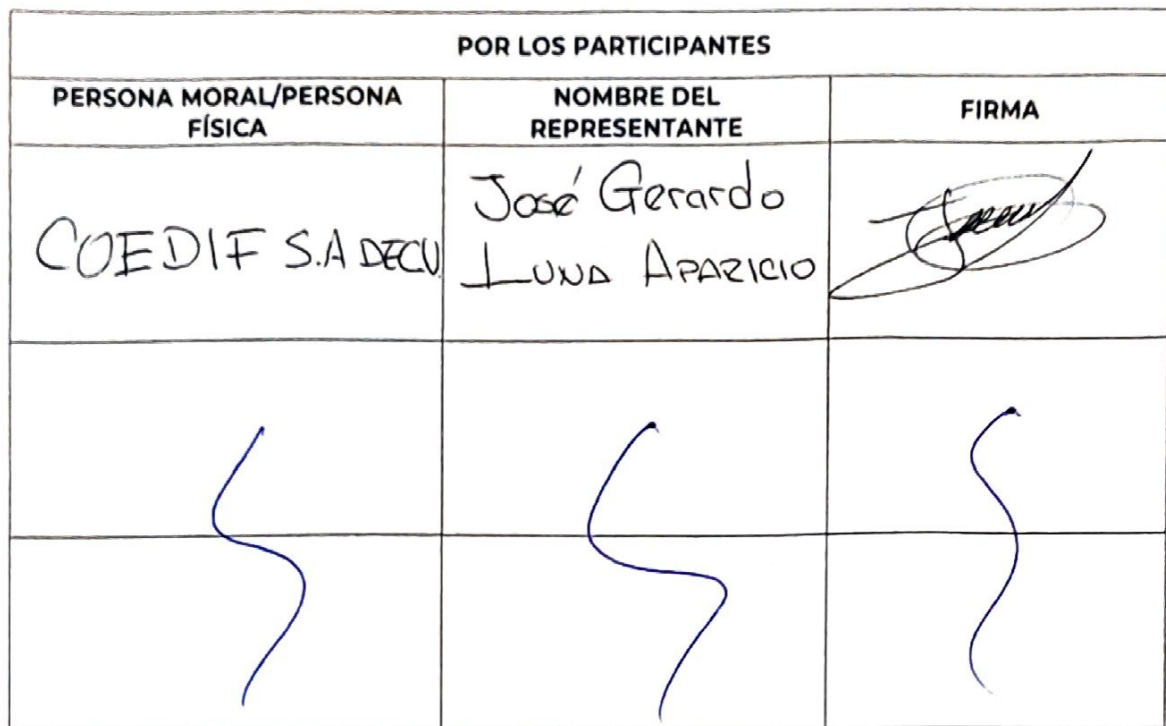 POR LOS PARTICIPANTES
PERSONA MORAL/PERSONA
FÍSICA
NOMBRE DEL
REPRESENTANTE
FIRMA
COEDIF S.A DE CV
José Gerardo
LUNA APARICIO